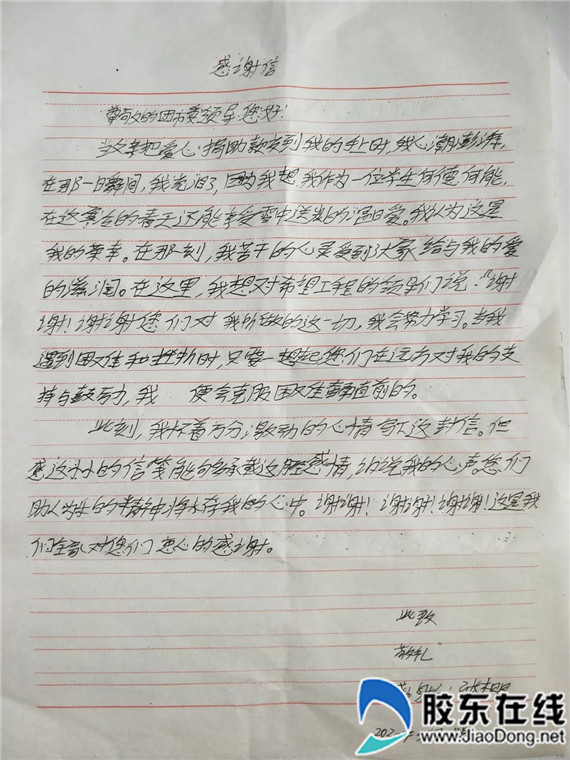 感谢信
尊敬的团市委领导您好:
当这笔把爱心捐助款发到我的手上时,我心潮澎湃,
在那一日瞬间,我流泪了,因为我想,我作为一位学生何德何能,
在这寒冷的春天还能享受雪中送炭的温爱。我认为这是
我的荣幸。在那刻,我苦干的心灵受到大家给与我的爱
的滋润。在这里,我想对希望工程的领导们说:“谢
谢!谢谢您们对我所做的这一切,我会努力学习。当我
遇到困难和挫折时,只要一想起您们在远方对我的支
持与鼓励,我 便会克服困难奋勇直前的。
此刻,我怀着万分激动的心情写下这封信。但
愿这小小的信笺能够承载这腔感情,诉说我的心声。您们
助人为乐的精神将永存我的心中。谢谢!谢谢!谢谢!这是我
们全家对您们衷心的感谢。
此致
敬礼
202
胶东在线
www.JiaoDong.net